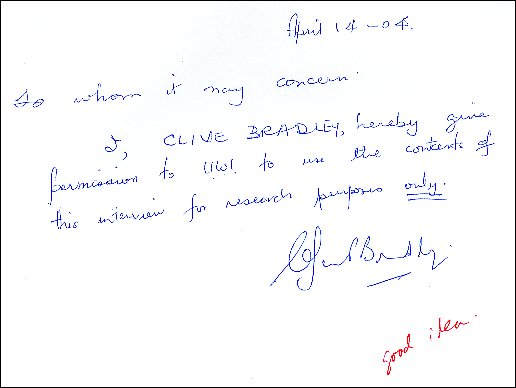 April 14-04.
To whom it may concern.
I, CLIVE BRADLEY, hereby give
permission to UWI to use the contents of
this interview for research purposes only.
Clive Bradley.
good idea.